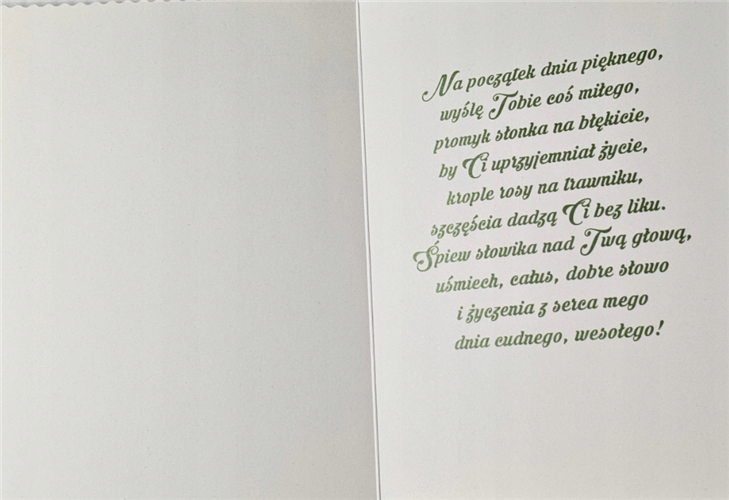 Na początek dnia pięknego,
wyślę Tobie coś miłego,
promyk słonka na błękicie,
by Ci uprzyjemniał życie,
krople rosy na trawniku,
szczęścia dadzą Ci bez liku.
Śpiew słowika nad Twą głową,
uśmiech, całus, dobre słowo
i życzenia z serca mego
dnia cudnego, wesołego!